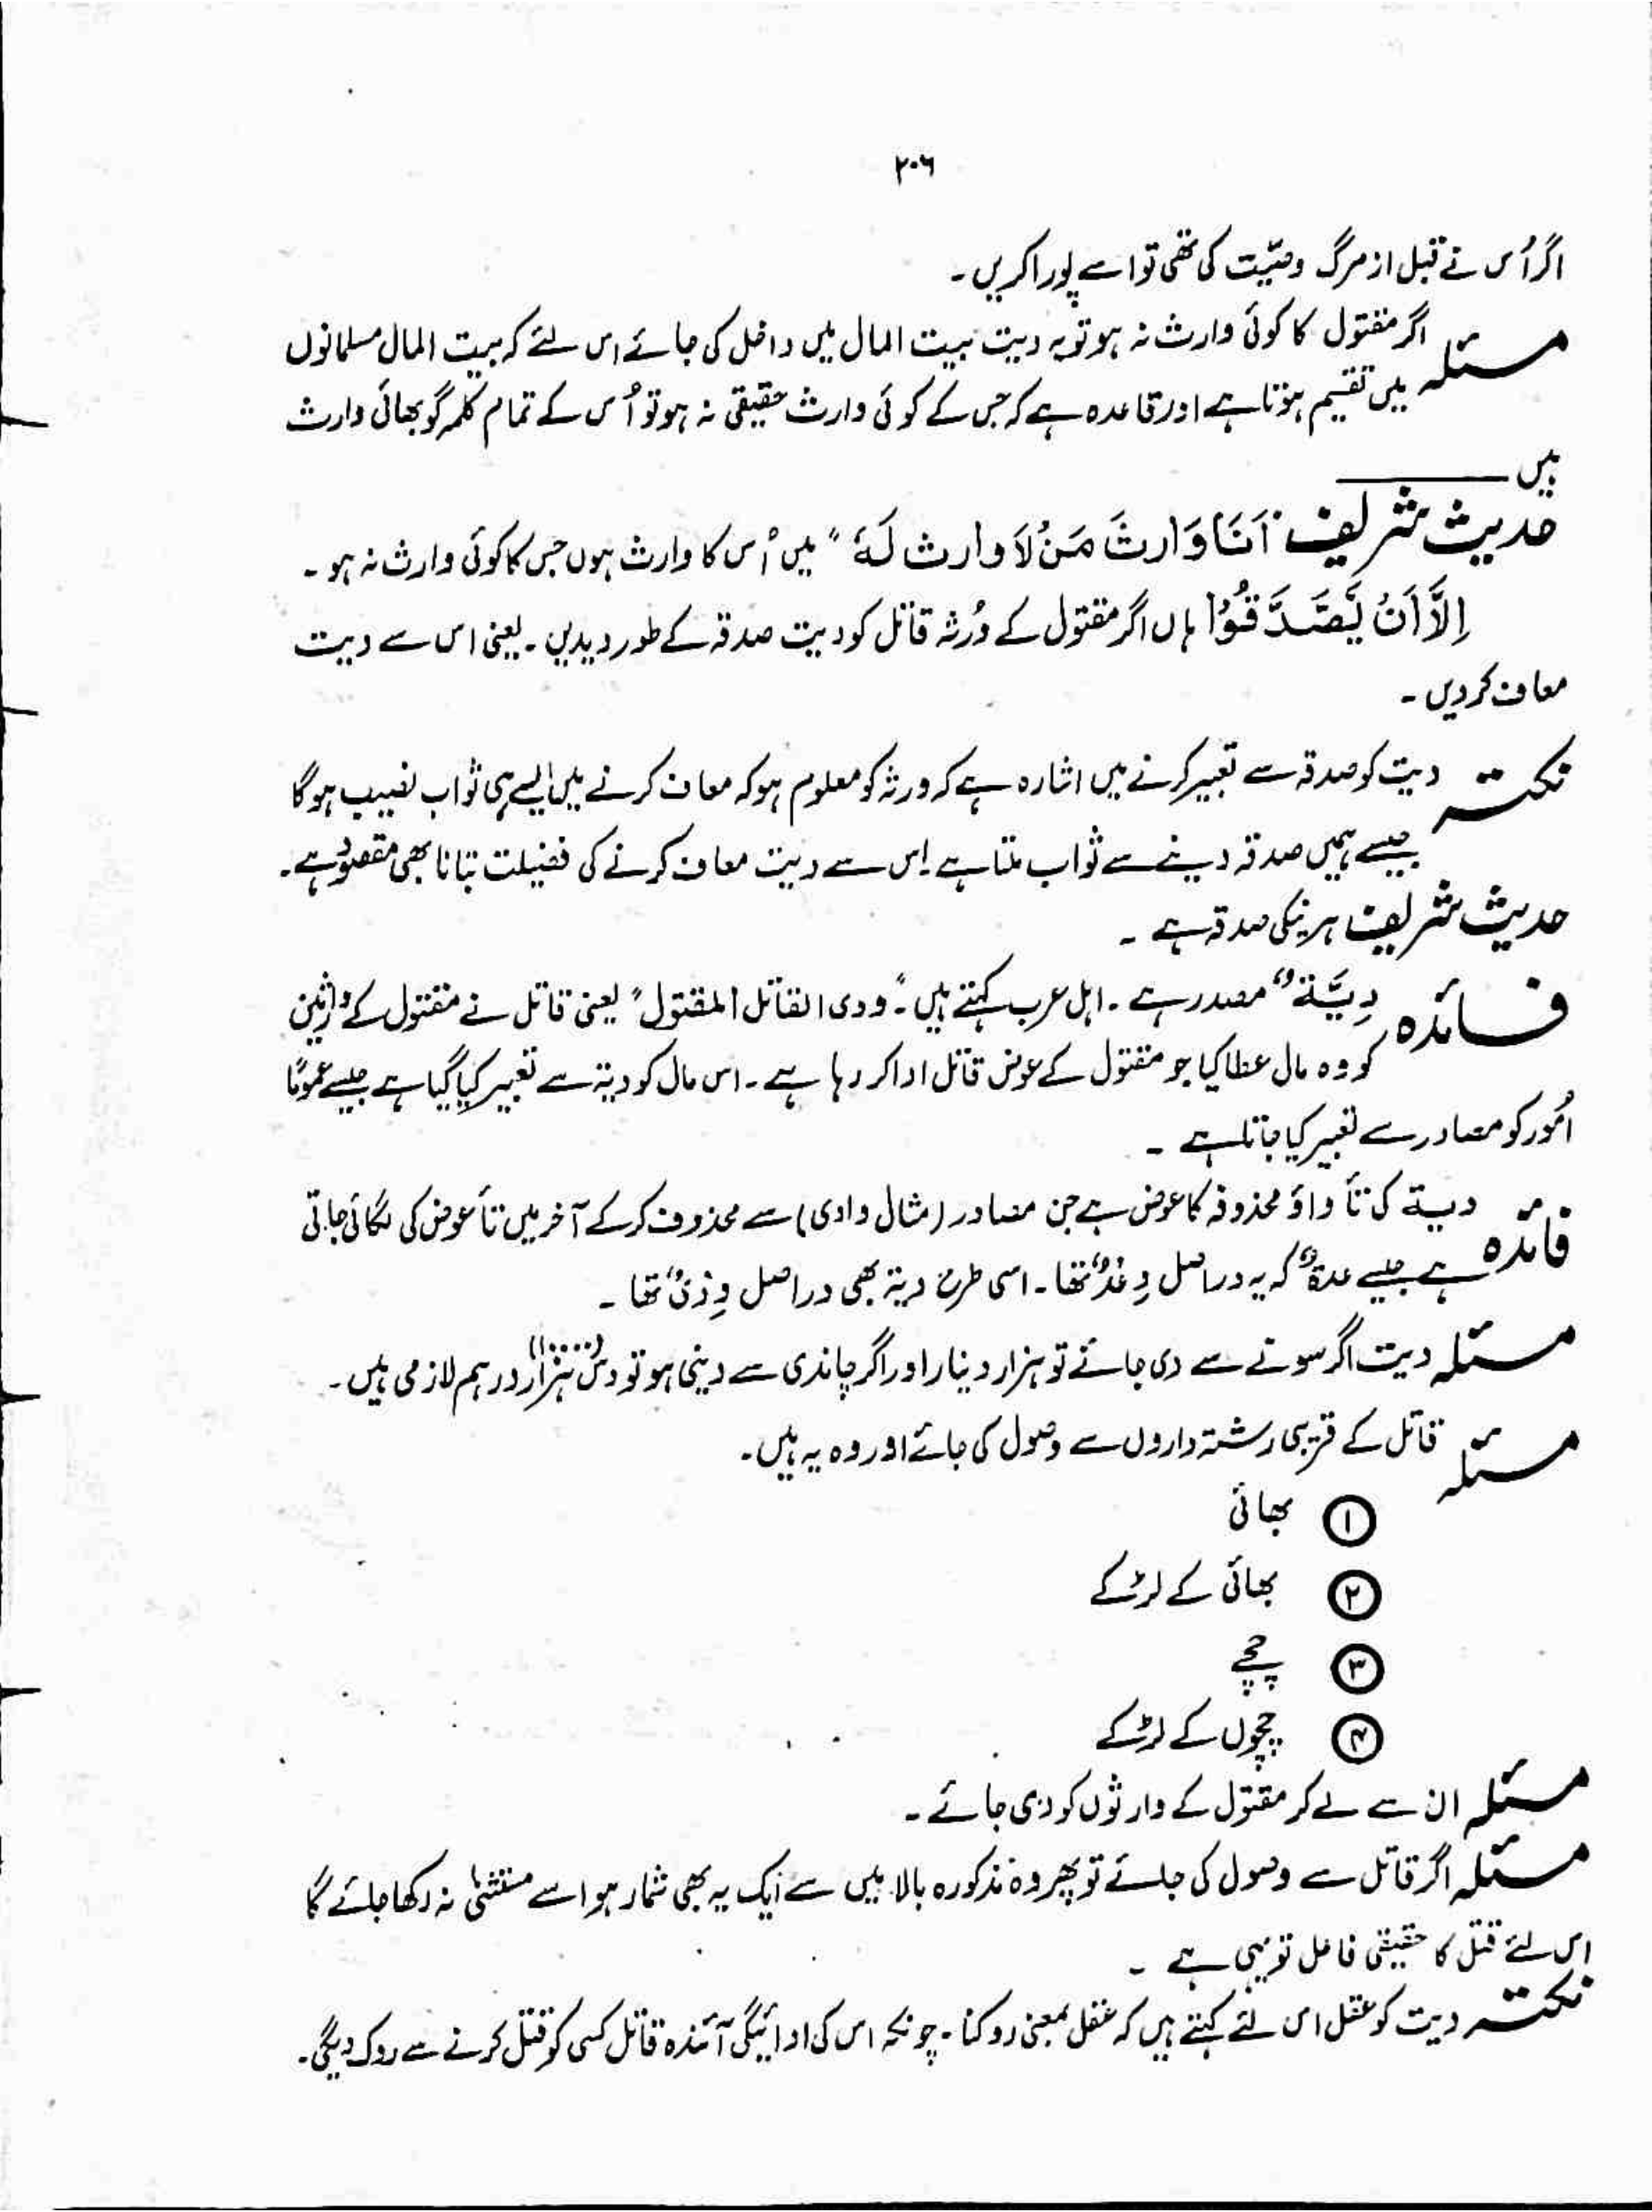 ۲۰۶
اگر اُس نے قبل از مرگ وصیّت کی تھی تو اسے پورا کریں ۔
مسئلہ اگر مقتول کا کوئی وارث نہ ہو تو یہ دیت بیت المال میں داخل کی جائے اس لئے کہ بیت المال مسلمانوں
میں تقسیم ہوتا ہے اور قاعدہ ہے کہ جس کے کوئی وارث حقیقی نہ ہو تو اُس کے تمام کلمہ گو بھائی وارث
ہیں
حدیث شریف اَنَا وَارِثُ مَنْ لَا وارث لَهٗ " میں اُس کا وارث ہوں جس کا کوئی وارث نہ ہو ۔
اِلَّاۤ اَنْ يَّصَّدَّقُوْا ہاں اگر مقتول کے وُرثہ قاتل کو دیت صدقہ کے طور دیدیں ۔ یعنی اس سے دیت
معاف کر دیں ۔
نکتہ دیت کو صدقہ سے تعبیر کرنے میں اشارہ ہے کہ ورثہ کو معلوم ہو کہ معاف کرنے میں ایسے ہی ثواب نصیب ہو گا
جیسے ہمیں صدقہ دینے سے ثواب ملتا ہے اس سے دیت معاف کرنے کی فضیلت بتانا بھی مقصود ہے ۔
حدیث شریف ہر نیکی صدقہ ہے ۔
فائدہ دِیَّۃٌ" مصدر ہے ۔ اہل عرب کہتے ہیں ۔ "ودی القاتل المقتول" یعنی قاتل نے مقتول کے وارثین
کو وہ مال عطا کیا جو مقتول کے عوض قاتل ادا کر رہا ہے ۔ اس مال کو دیۃ سے تعبیر کیا گیا ہے جیسے عموماً
اُمور کو مصادر سے تعبیر کیا جاتا ہے ۔
فائدہ دیۃ کی تأ واؤ محذوفہ کا عوض ہے جن مصادر (مثال وادی) سے محذوف کر کے آخر میں تأ عوض کی لگائی جاتی
ہے جیسے عدۃٌ کہ یہ دراصل وِعْدٌ تھا ۔ اسی طرح دیۃ بھی دراصل وِدْیٌ تھا ۔
مسئلہ دیت اگر سونے سے دی جائے تو ہزار دینار اور اگر چاندی سے دینی ہو تو دس ہزار درہم لازمی ہیں ۔
مسئلہ قاتل کے قریبی رشتہ داروں سے وصول کی جائے اور وہ یہ ہیں ۔
۱ بھائی
۲ بھائی کے لڑکے
۳ چچے
۴ چچوں کے لڑکے
مسئلہ ان سے لے کر مقتول کے وارثوں کو دی جائے ۔
مسئلہ اگر قاتل سے وصول کی جائے تو پھر وہ مذکورہ بالا میں سے ایک یہ بھی شمار ہو اسے مستثنیٰ نہ رکھا جائے گا
اس لئے قتل کا حقیقی فاعل تو یہی ہے ۔
نکتہ دیت کو عقل اس لئے کہتے ہیں کہ عقل بمعنی روکنا ۔ چونکہ اس کی ادائیگی آئندہ قاتل کسی کو قتل کرنے سے روک دیگی ۔